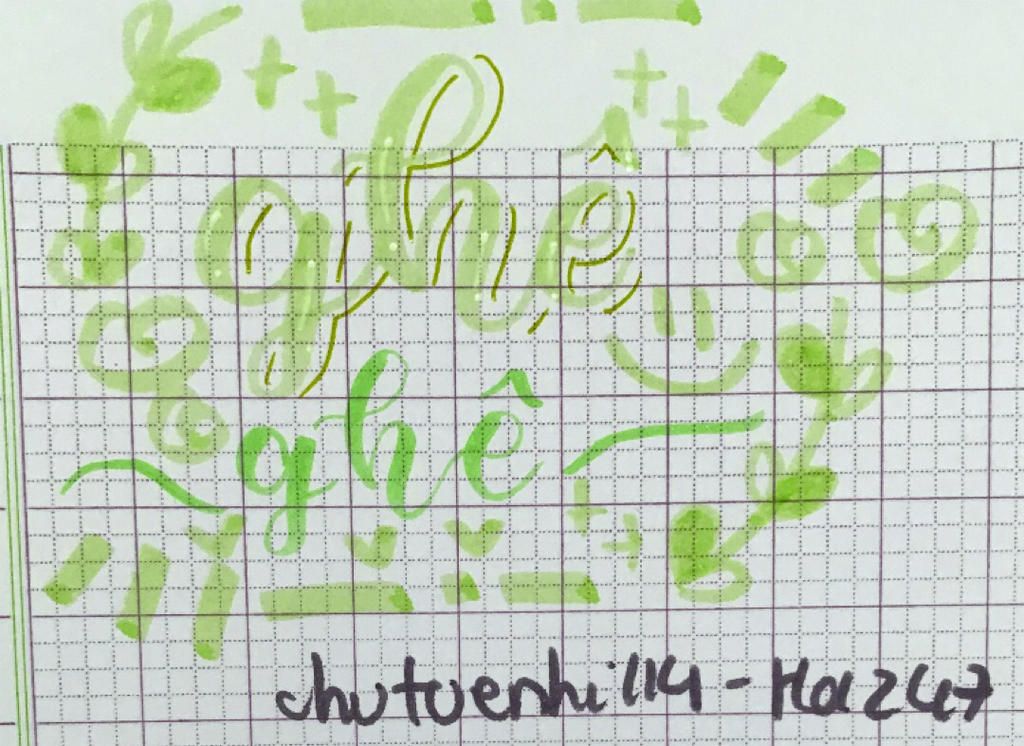 ghê
ghê
chutuenhi1114 - Haz47